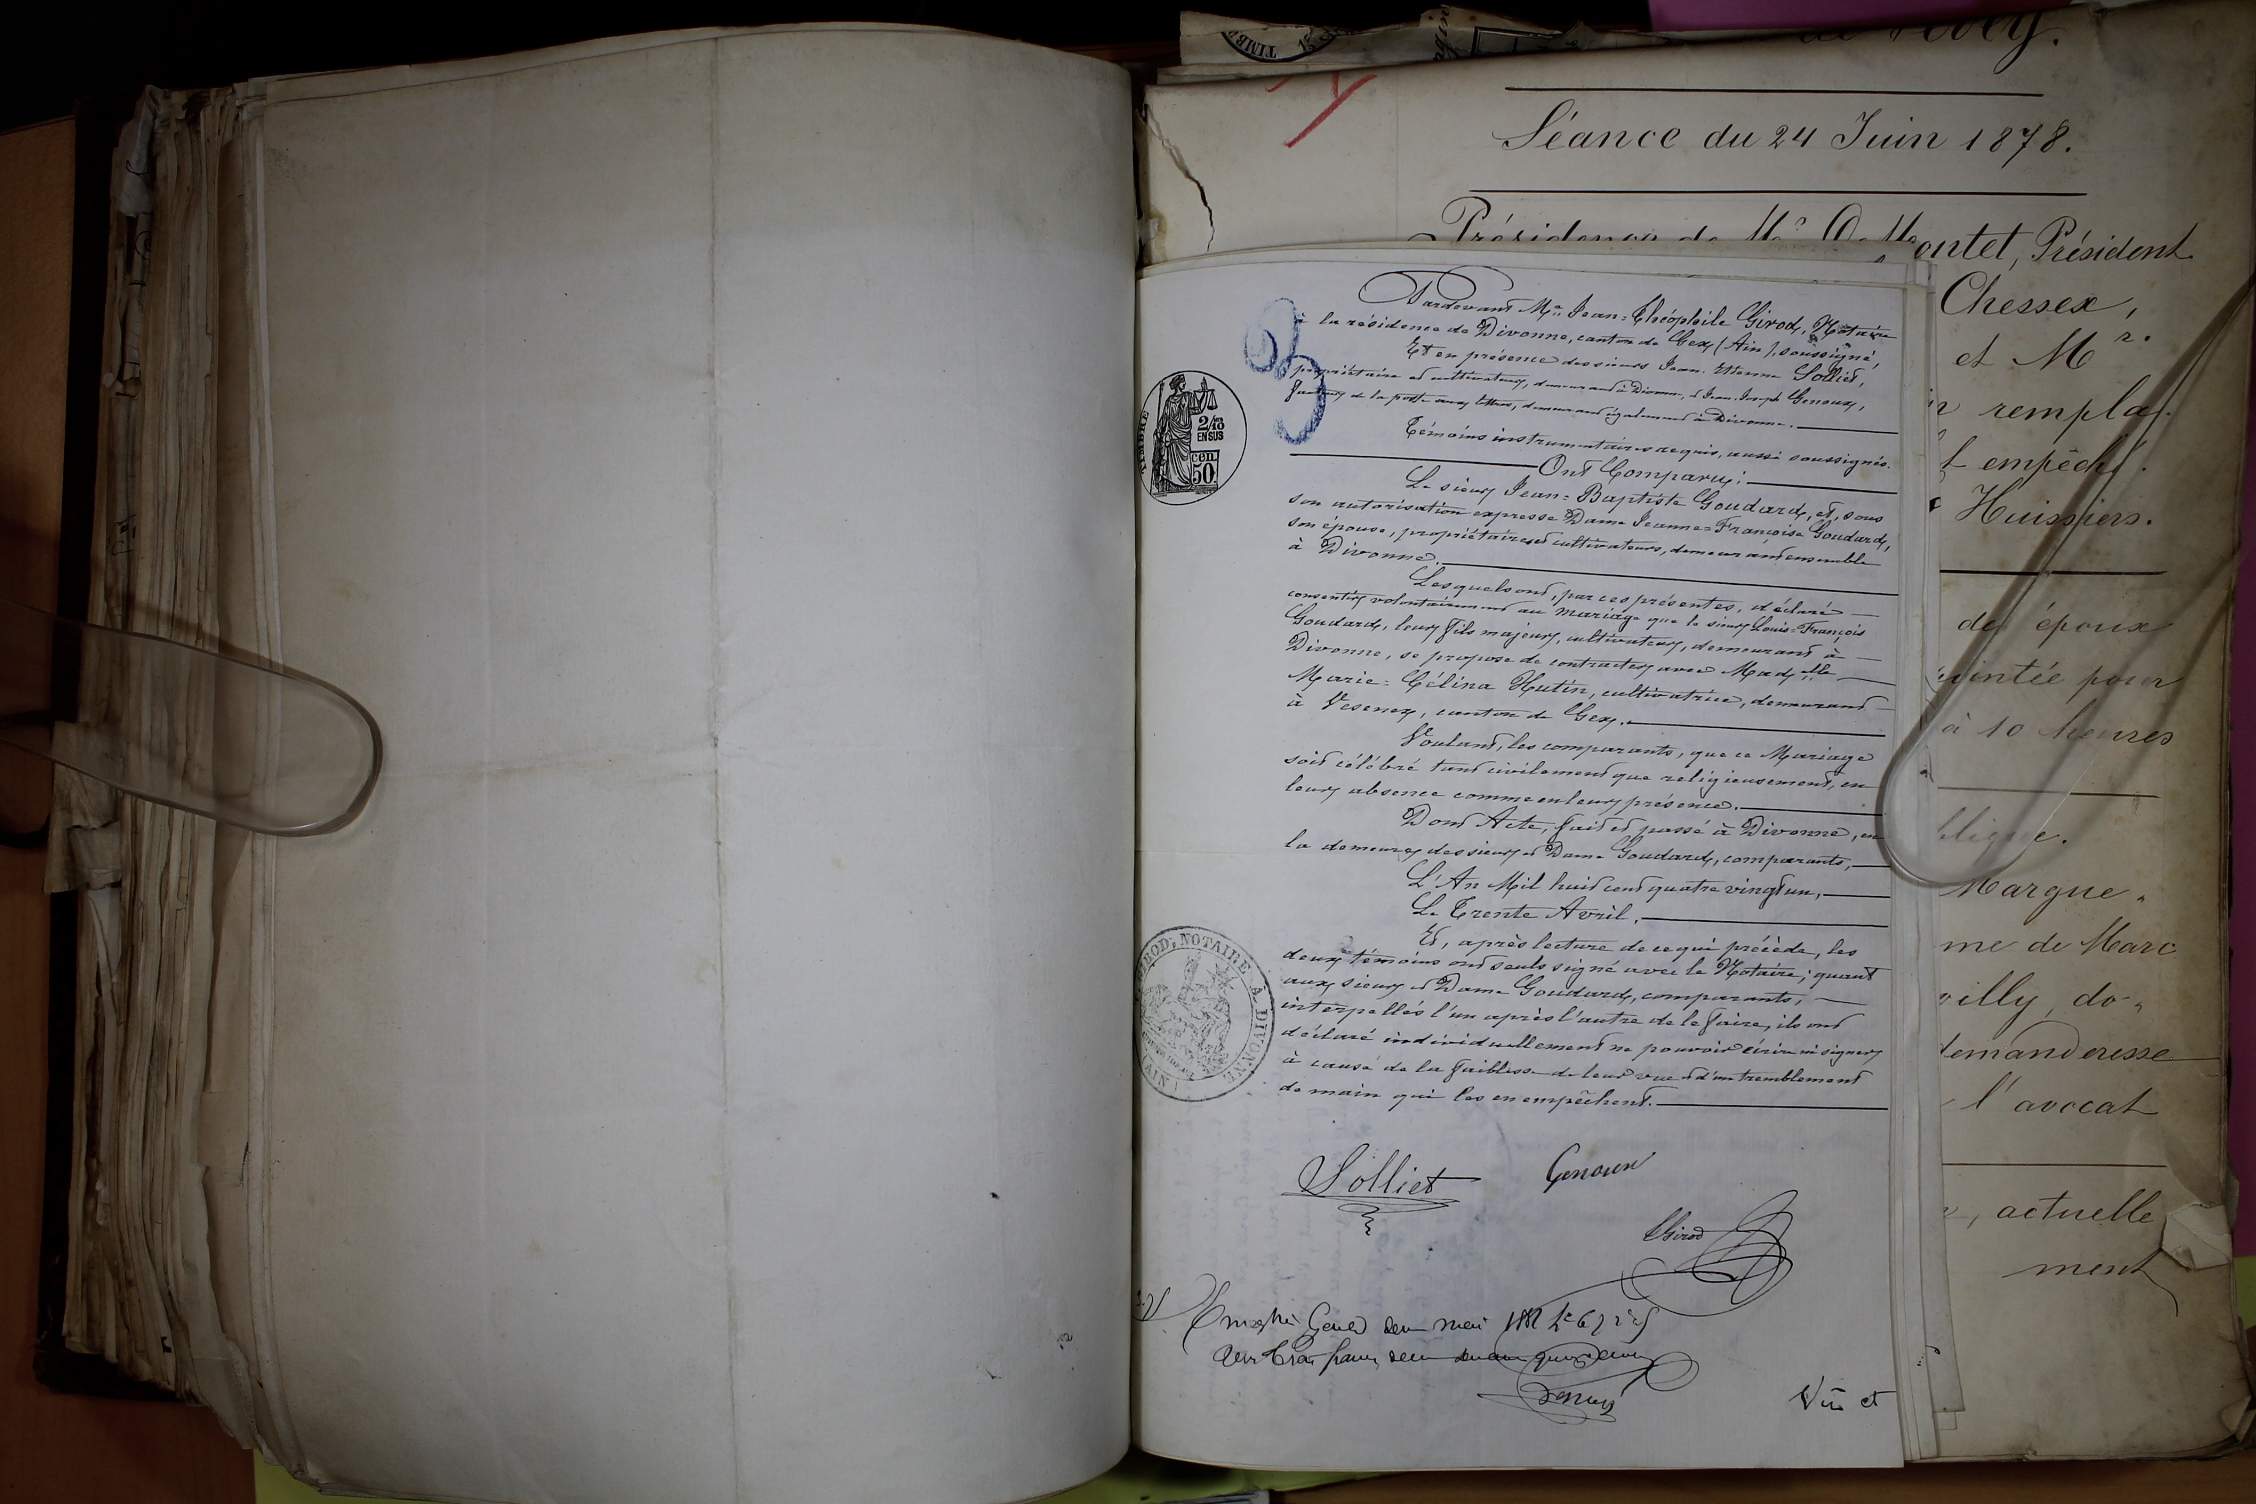 TIMBRE
de Vevey.
Séance du 24 Juin 1878.
Présidence de Mr. DeMontet, Président
Chessex,
et Mr.
rempla-
empêché.
Huissiers.
des époux
pour
à 10 heures
Margue-
me de Marc
villy, do-
demanderesse
l'avocat
actuelle
ment
Pardevant Me. Jean-Théophile Girod, Notaire
à la résidence de Divonne, canton de Gex (Ain), soussigné,
Et en présence des sieurs Jean-Etienne Solliet,
propriétaire et cultivateur, demeurant à Divonne, et Jean-Joseph Genoux,
facteur de la poste aux lettres, demeurant également à Divonne.
Témoins instrumentaires requis, aussi soussignés.
Ont Comparu:
Le sieur Jean-Baptiste Goudard, et, sous
son autorisation expresse Dame Jeanne-Françoise Goudard,
son épouse, propriétaires et cultivateurs, demeurant ensemble
à Divonne.
Lesquels ont, par ces présentes, déclaré
consentir volontairement au mariage que le sieur Louis-François
Goudard, leur fils majeur, cultivateur, demeurant à
Divonne, se propose de contracter avec Madelle
Marie-Célina Hutin, cultivatrice, demeurant
à Vesenex, canton de Gex.
Voulant, les comparants, que ce Mariage
soit célébré tant civilement que religieusement, en
leur absence comme en leur présence.
Dont Acte, fait et passé à Divonne, en
la demeure des sieur et Dame Goudard, comparants,
L'An Mil huit cent quatre vingt un,
Le Trente Avril.
Et, après lecture de ce qui précède, les
deux témoins ont seuls signé avec le Notaire; quant
aux sieur et Dame Goudard, comparants,
interpellés l'un après l'autre de le faire, ils ont
déclaré individuellement ne pouvoir écrire ni signer
à cause de la faiblesse de leur vue et d'un tremblement
de main qui les en empêchent.
TIMBRE
2/10
EN SUS
50 cen
GIROD, NOTAIRE À DIVONNE (AIN)
Solliet
Genoux
Girod
mai
Vu et